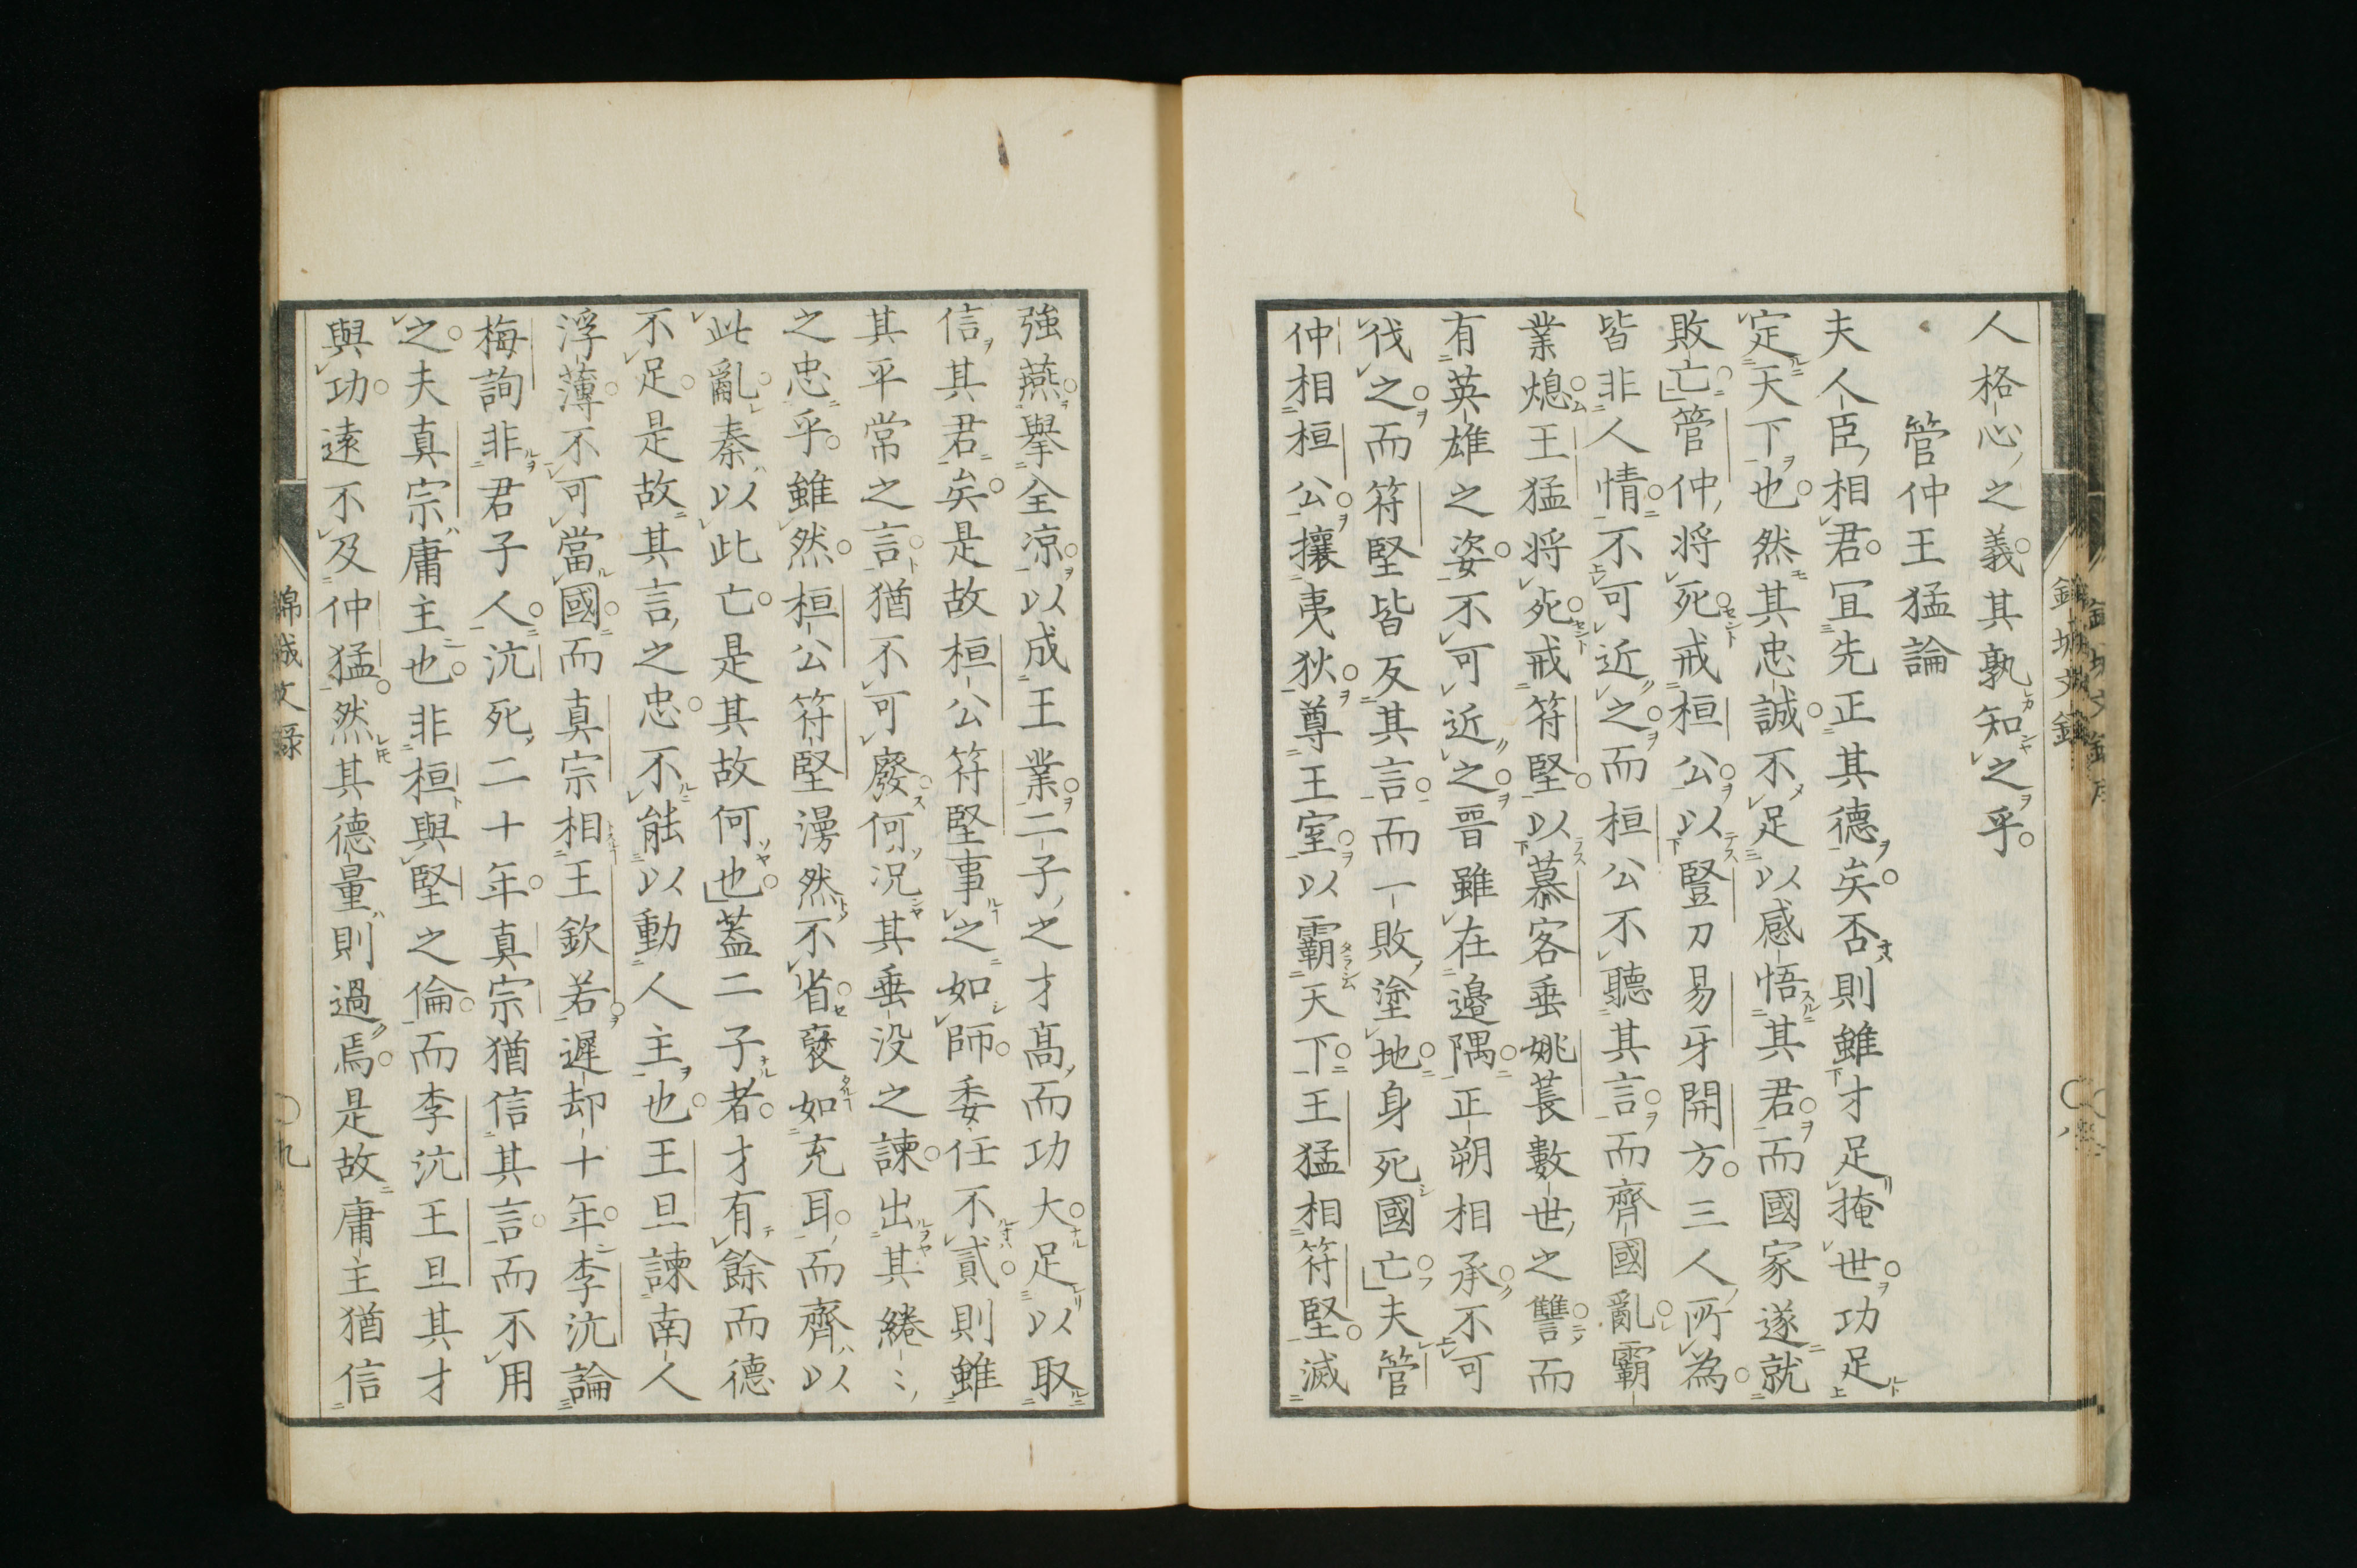 人格心之義其孰知之乎
管仲王猛論
夫人臣相君冝先正其德矣否則雖才足掩世功足
定天下也然其忠誠不足以感悟其君而國家遂就
敗亡管仲將死戒桓公以豎刀易牙開方三人所為
皆非人情不可近之而桓公不聽其言而齊國亂霸
業熄王猛將死戒符堅以慕容垂姚萇數世之讐而
有英雄之姿不可近之晉雖在邊隅正朔相承不可
伐之而符堅皆反其言而一敗塗地身死國亡夫管
仲相桓公攘夷狄尊王室以霸天下王猛相符堅滅
強燕擧全凉以成王業二子之才高而功大足以取
信其君矣是故桓公符堅事之如師委任不貳則雖
其平常之言猶不可廢何况其垂没之諫出其綣〻
之忠乎雖然桓公符堅漫然不省褎如充耳而齊以
此亂秦以此亡是其故何也蓋二子者才有餘而德
不足是故其言之忠不能以動人主也王旦諫南人
浮薄不可當國而真宗相王欽若遲却十年李沆論
梅詢非君子人沆死二十年真宗猶信其言而不用
之夫真宗庸主也非桓與堅之倫而李沆王旦其才
與功遠不及仲猛然其德量則過焉是故庸主猶信
錦城文録
九
錦城文録
八